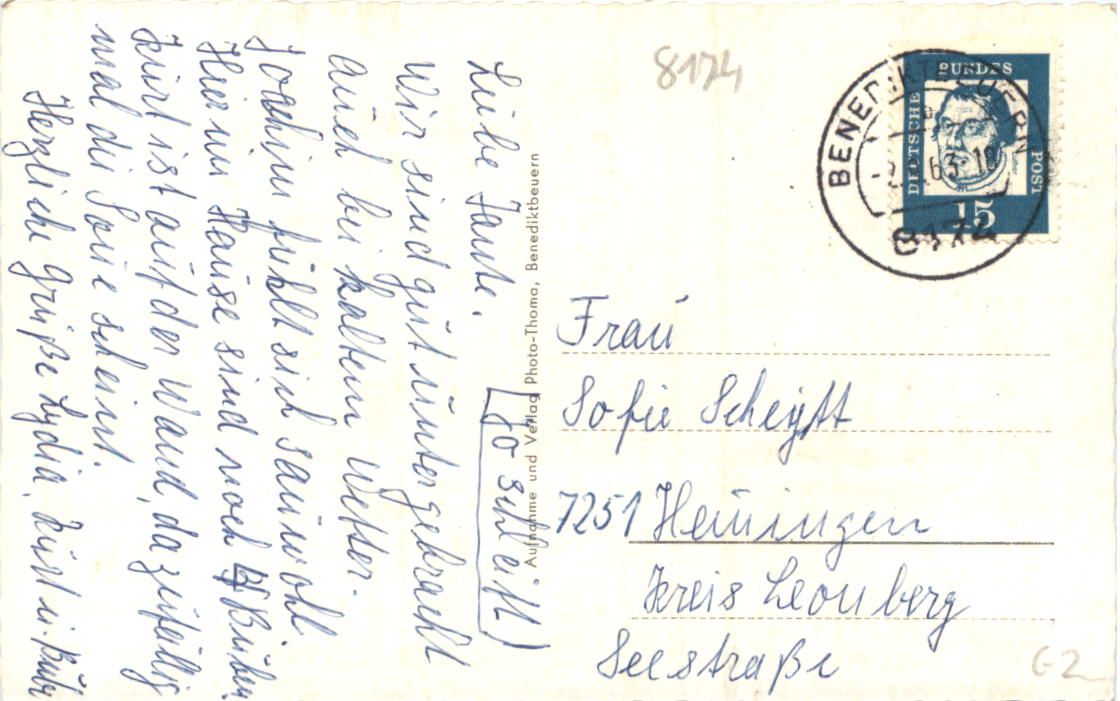 Liebe Tante.
Wir sind gut untergebracht
auch bei kaltem Wetter.
Joachim fühlt sich sauwohl
Hier im Hause sind noch 4 Buben
Kurt ist auf der Wand, da zufällig
mal die Sonne scheint.
Herzliche Grüße Lydia, Kurt u. Bub
(Jo schleift)
Aufnahme und Verlag Photo-Thoma, Benediktbeuern
8174
BENEDIKTBEUERN
63-18
8174
DEUTSCHE BUNDES POST
15
Frau
Sofie
7251 Heimingen
Kreis Leonberg
Seestraße
G2